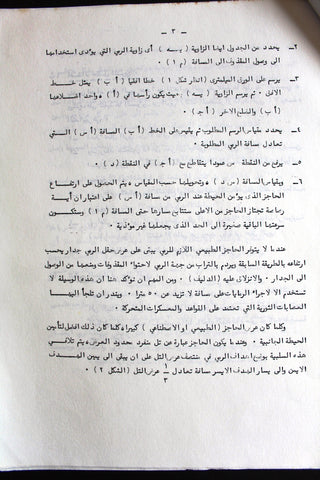 - ٣ -
٢ــ يحدد من الجدول ايضا الزاوية ( يسه ) أى زاوية الرمي التي يؤدى استخدامها
الى وصول المقذوف الى المسافة ( م ١ ) ٠
٣ــ يرسم على الورق المليمترى ( انظر شكل ١ ) خطا افقيا ( أ ب ) يمثل خط
الافق ٠ ثم يرسم الزاوية ( يسه ) بحيث يكون رأسها في ( أ ) واحد اضلاعها
( أ ب ) والضلع الاخر ( أ جـ ) ٠
٤ــ يحدد مقياس الرسم المطلوب ثم يقيس على الخط ( أ ب ) المسافة ( أ س ) التي
تعادل مسافة الرمي المطلوبة ٠
٥ــ يرفع من النقطة س عمودا يتقاطع مع ( أ جـ ) في النقطة ( د ) ٠
٦ــ وبقياس المسافة ( س د ) وتحويلها حسب المقياس يتم الحصول على ارتفاع
الحاجز الذى يؤ من الحيطة عند الرمي من مسافة ( أ س ) على اعتبار أن أية
رصاصة تجتاز الحاجز من الاعلى ستتابع مسارها حتى المسافة ( م ١ ) وستكون
سرعتها الباقية صغيرة الى الحد الذى يجعلها غير مؤذية ٠
عند ما لا يتوفر الحاجز الطبيعي اللازم للمرمي يبنى على عرض حقل الرمي جدار يحسب
ارتفاعه بالطريقة السابقة ويردم بالتراب من جهة الرمي لاحتواء المقذوفات ومنعها من الوصول
الى الجدار ٠ والانزلاق عليه ( الدليف ) ٠ ومن المهم أن نؤكد هنا ان هذه الوسيلة لا
تستخدم الا لاجراء الرمايات على مسافة لا تزيد عن ٥٠ مترا ٠ ويندر ان تلجأ اليها
العصابات الثورية التي تعتمد على القواعد والمعسكرات المتحركة ٠
وكلما كان عرض الحاجز ( الطبيعي او الاصطناعي ) كبيرا كلما كان ذلك افضل لتأمين
الحيطة الجانبية ٠ وعندما يكون الحاجز عبارة عن تل منفرد محدود العرض يتم تلافي
هذه السلبية بوضع اهداف الرمي في منتصف عرض التل على ان يبقى الى يمين الهدف
الايمن والى يسار الهدف الايسر مسافة تعادل ١/٣ عرض التل ( الشكل ٢ ) ٠